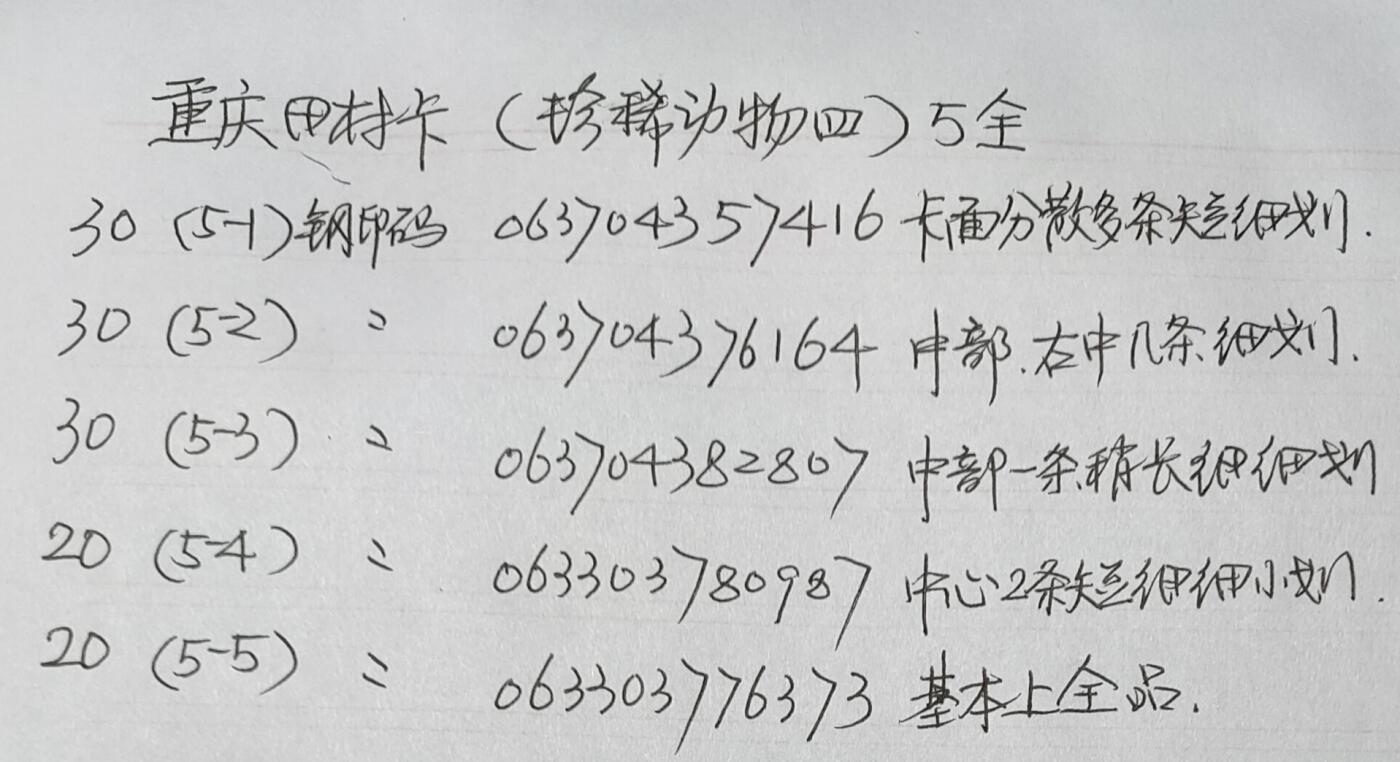 重庆田村卡（珍稀动物四）5全
30 (5-1) 钢印码 063704357416 卡面分散多条短细划.
30 (5-2) 〃 063704376164 中部.右中几条细划.
30 (5-3) 〃 063704382807 中部一条稍长细细划
20 (5-4) 〃 063303780987 中心2条短细细小划.
20 (5-5) 〃 063303776373 基本上全品.